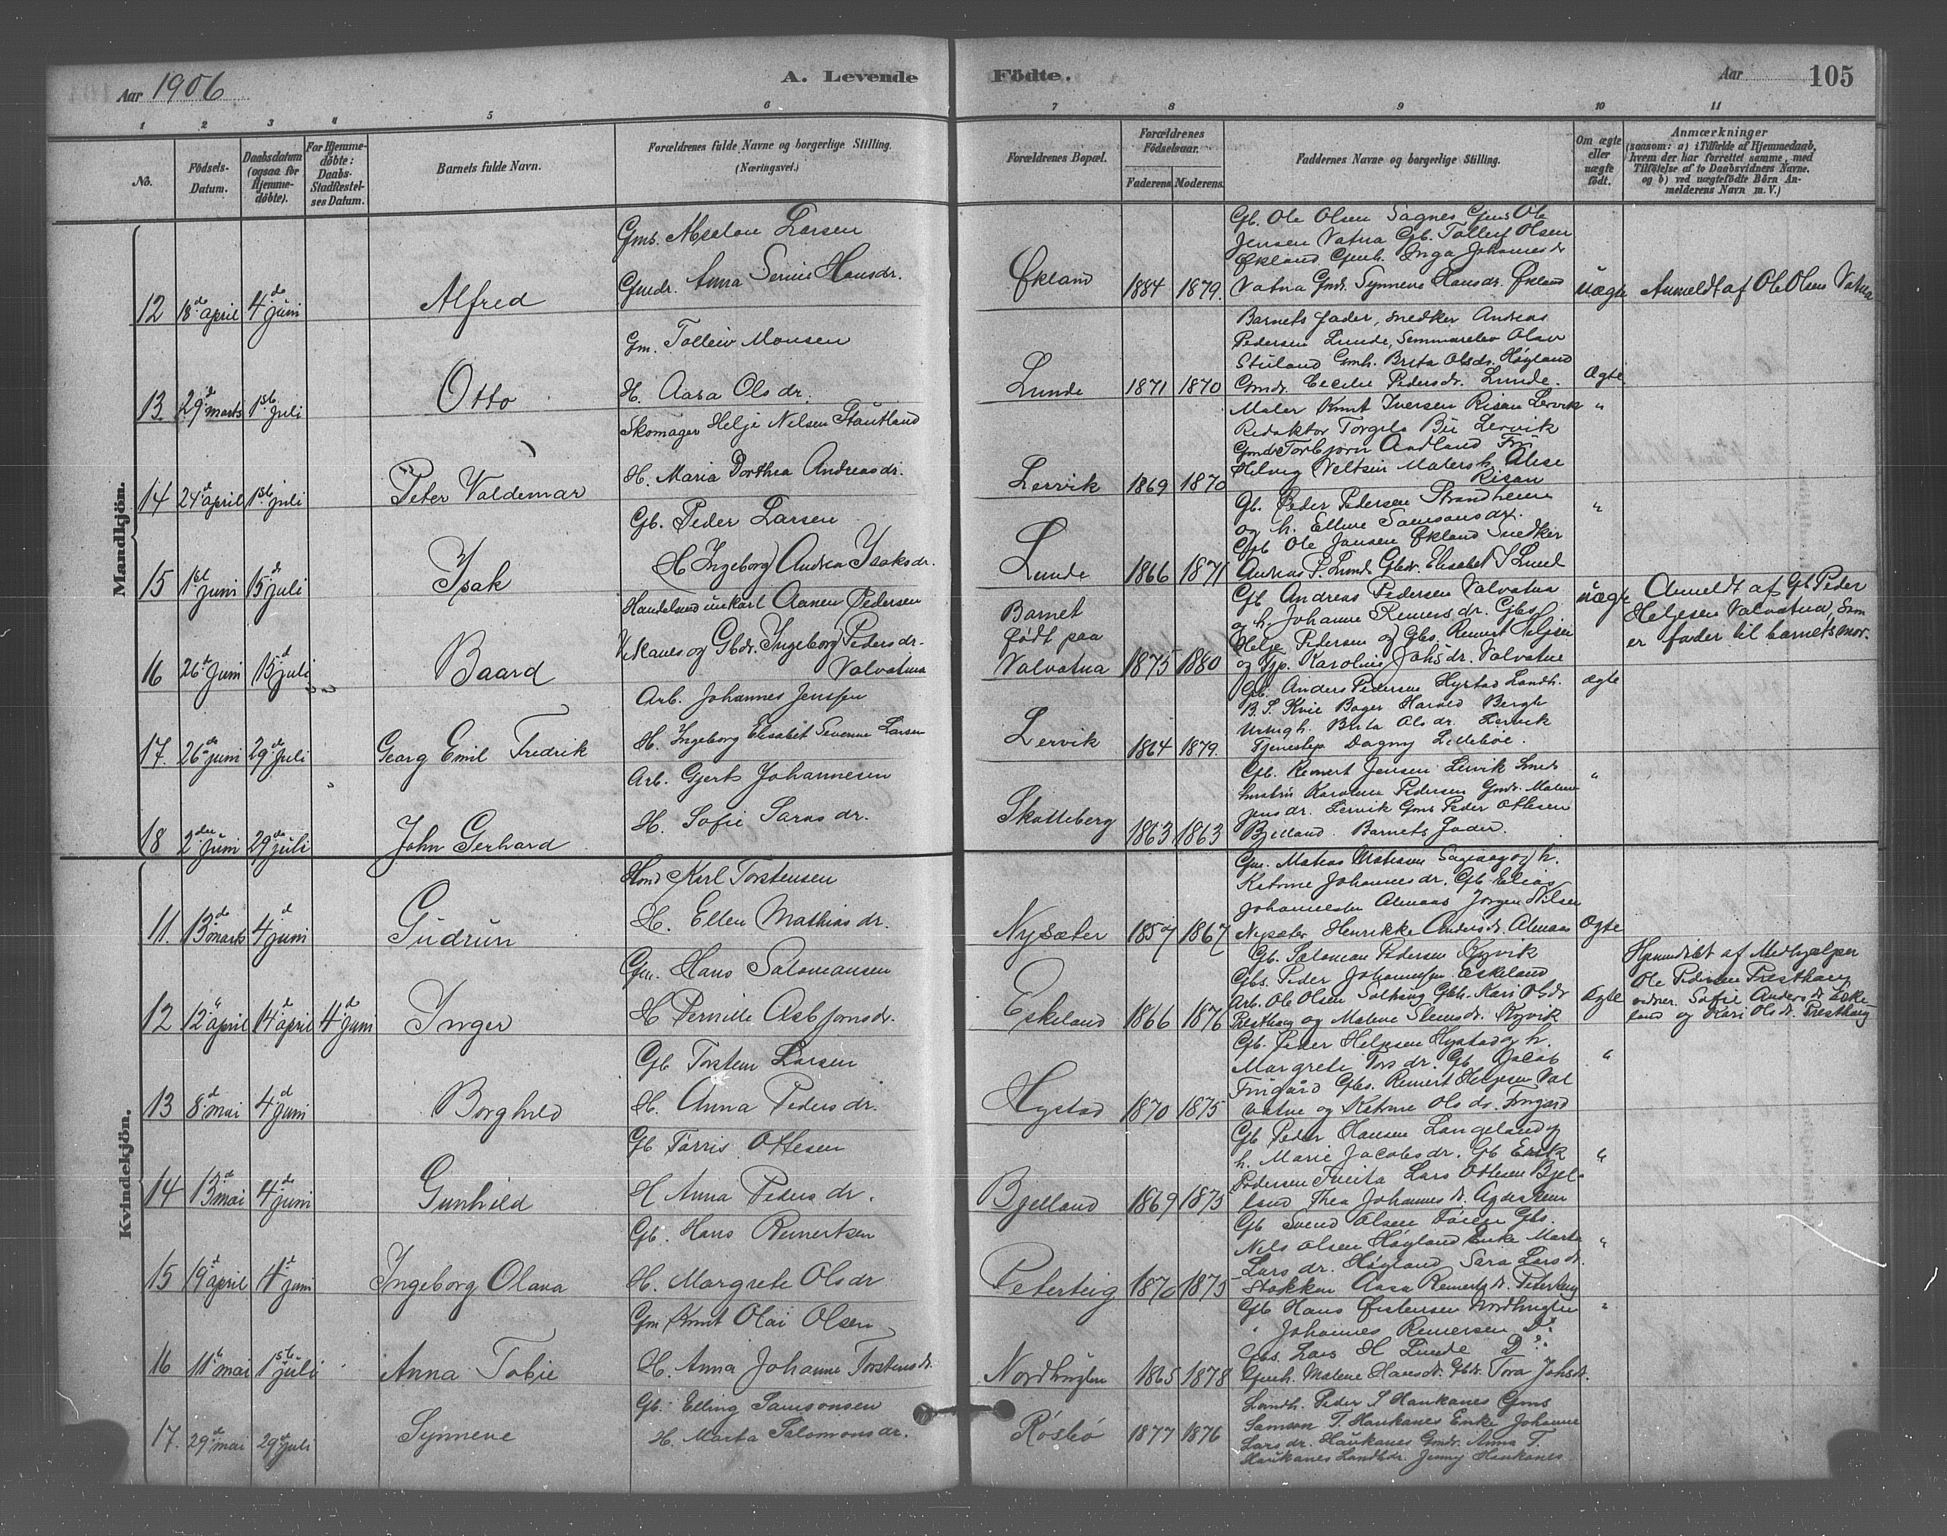 Aar 1906
A. Levende
Fødte.
Aar
105
1 2 3 4 5 6 7 8 9 10 11
No.
Fødsels-
Datum.
Daabsdatum
(ogsaa for
Hjemme-
døbte).
For Hjemme-
døbte:
Daabs-
Stadfæstel-
ses Datum.
Barnets fulde Navn.
Forældrenes fulde Navne og borgerlige Stilling.
(Næringsvei.)
Forældrenes Bopæl.
Forældrenes
Fødselsaar.
Faderens. Moderens.
Faddernes Navne og borgerlige Stilling.
Om ægte
eller
uægte
født.
Anmærkninger
(saasom: a) i Tilfælde af Hjemmedaab,
hvem der har forrettet samme, med
Tilføielse af to Daabsvidners Navne.
og b) ved uægtefødte Børn An-
melderens Navn m. V.)
Mandkjøn.
12 18de april 4de juni
Alfred
Gms. Larsen
Anna Serine Hansdr.
Økland 1884 1879.
Gb. Ole Olsen Sagnes Gms Ole
Jensen Vatna Gb. Tollef Olsen
Økland Gmh. Inga Johannesdr
Vatna Gmdr. Synneve Hansdr. Økland
uægte
Anmeldt af Ole Olsen Vatna
13 29de marts 1ste juli
Otto
Gm. Tolleiv Monsen
H. Aasa Olsdr.
Lunde 1871 1870
Barnets fader, snedker Andreas
Pedersen Lunde, Olav
Gmh. Brita Olsdr. Høyland
Gmdr. Cecilie Pedersdr. Lunde.
Ægte
14 24de april 1ste juli
Peter Valdemar
Skomager Helje Nilsen Stautland
H. Maria Dorthea Andreasdr.
Lervik 1869 1870
Maler Knut Iversen Risan Lervik
Redaktør Torgels Bü Lervik
Torbjørn Aadland Frk
Malersh. Alise
Risan
"
15 1ste juni 15de juli
Isak
Gb. Peder Larsen
H Ingeborg Andrea Isaksdr.
Lunde 1866 1871
Gb. Peder Pedersen Strandheim
og h. Elline Samsonsdr.
Ole Jansen Økland Snedker
Andreas P. Lunde Gbdr. Elisabet Lund
"
16 26de juni 15de juli
Baard
Aanen Pedersen
Vikanes og Gbdr. Ingeborg Pedersdr.
Valvatna
Barnet
født paa
Valvatna 1875 1880
Gb. Andreas Pedersen Valvatna
og h. Johanne Reinersdr. Gbs
Helje Pedersen og Gbs. Reinert Heljsen
og Karoline Johsdr. Valvatne
uægte
Anmeldt af Gb Peder
Heljesen Valvatna, som
er fader til barnets mor.
17. 26de juni 29de juli
Georg Emil Fredrik
Arb. Johannes Jensen
H. Ingeborg Elisabet Severine Larsen
Lervik 1864 1879.
Gb. Anders Pedersen Hystad Landh.
B. S. Kvie Bager Harald Bergh
Brita Olsdr. Lervik
Tjenestep. Dagny Lillebøe.
ægte
18 2den juni 29de juli
John Gerhard
Arb. Gjert Johannesen
H. Sofie Larsdr.
Skatteberg 1863 1863
Gb. Reinert Jensen Lervik Smed
hustru Karoline Pedersen Gmdr. Malene
Jensdr. Lervik Gms Peder Ottesen
Bjelland. Barnets fader.
"
Kvindekjøn.
11. 13de marts 4de juni
Gudrun
Karl Torstensen
H. Ellen Mathiasdr.
Nysæter 1857 1867
Gm. Matias Matiasen Sagvaag og h.
Katrine Johannesdr. Gb Elias
Johannesen Almaas Jørgen Nilsen
Nysæter Henrikke Andersdr Almaas
Ægte
12 12te april 14de april 4de juni
Inger
Gm. Hans Salomonsen
H Pernille Asbjørnsdr.
Eskeland 1866 1876
Gb. Salomon Pedersen Kyvik
Gbs. Peder Johannesen Eskeland
Arb. Ole Olsen Gbh. Kari Olsdr
Presthaug og Malene Kyvik
Ægte
Hjemmedøbt af Medhjælper
Ole Pedersen Presthaug
vidner Sofie Andersdr Eske-
land og Kari Olsdr. Presthaug
13 8de mai 4de juni
Borghild
Gb Torstein Larsen
H. Anna Pedersdr.
Hystad 1870 1875
Gb. Peder Heljesen Hystad og h.
Margrete Torsdr. Gb. Jacob
Gbs. Reinert Heljesen Val
vatne og Katrine Olsdr.
"
14 13de mai 4de juni
Gunhild
Gb. Torris Ottesen
H Anna Pedersdr.
Bjelland 1869 1875
Gb Peder Hansen Langeland og
h. Marie Jacobsdr. Gb Erik
Pedersen Lars Ottesen Bjel-
land Thea Johannesdr.
"
15 19de april 4de juni
Ingeborg Olava
Gb. Hans Reinertsen
H. Margrete Olsdr
Peterteig 1870 1875
Gb Svend Olsen Gbs.
Nils Olsen Høyland Enke Marta
Larsdr. Høyland Sara Larsdr.
Stokken Aasa Reinertsdr. Peterteig
"
16 11te mai 1ste juli
Anna Tobie
Gm Knut Olai Olsen
H. Anna Johanne Torstensdr.
Nordhuglen 1865 1878
Gb Hans Østensen Nordhuglen
" Johannes Reinersen Do.
Gbs. Lars H Lunde Do.
Gmh. Malene Hansdr. Gbdr. Tora Johsdr.
"
17. 29de mai 29de juli
Synneve
Gb. Elling Samsonsen
H. Marta Salomonsdr.
Røsbø 1877 1876
Landh. Peder S Haukanes Gms
Samson T. Haukanes Enke Johanne
Larsdr. Haukanes Gmdr. Anna T.
Haukanes Landhdr. Jenny Haukanes